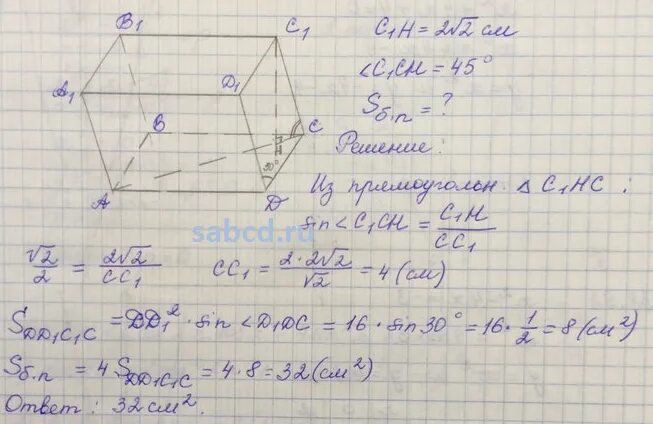 B₁
C₁
A₁
D₁
B
C
H
30°
A
D
C₁H = 2√2 см
∠C₁CH = 45°
Sб.п = ?
Решение:
Из прямоугольн. △ C₁HC:
sin ∠C₁CH = C₁H / CC₁
sabcd.ru
√2/2 = 2√2/CC₁ CC₁ = 2·2√2/√2 = 4 (см)
S_DD₁C₁C = DD₁² · sin ∠D₁DC = 16 · sin 30° = 16 · 1/2 = 8 (см²)
Sб.п = 4 S_DD₁C₁C = 4·8 = 32 (см²)
Ответ: 32 см².